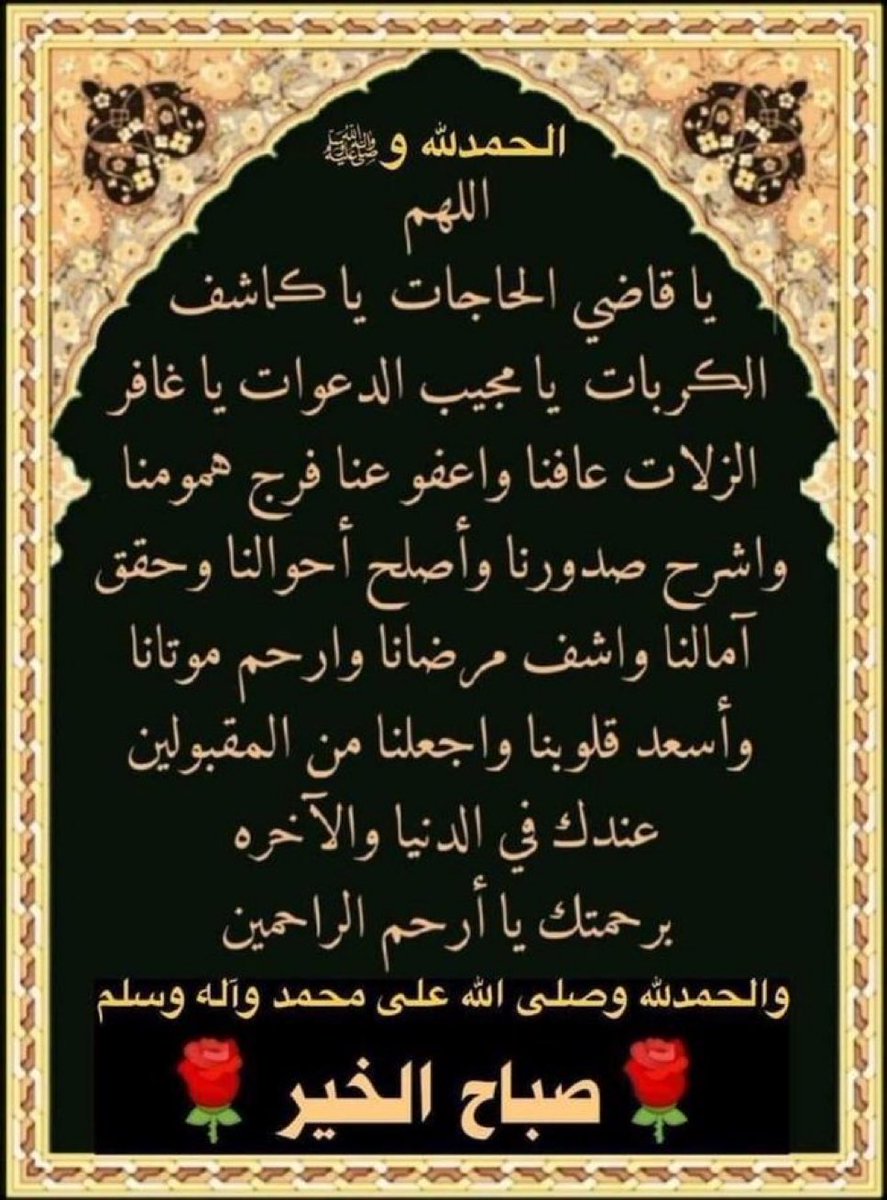 الحمدلله و ﷺ
اللهم
يا قاضي الحاجات يا كاشف
الكربات يا مجيب الدعوات يا غافر
الزلات عافنا واعفو عنا فرج همومنا
واشرح صدورنا وأصلح أحوالنا وحقق
آمالنا واشف مرضانا وارحم موتانا
وأسعد قلوبنا واجعلنا من المقبولين
عندك في الدنيا والآخره
برحمتك يا أرحم الراحمين
والحمدلله وصلى الله على محمد وآله وسلم
صباح الخير